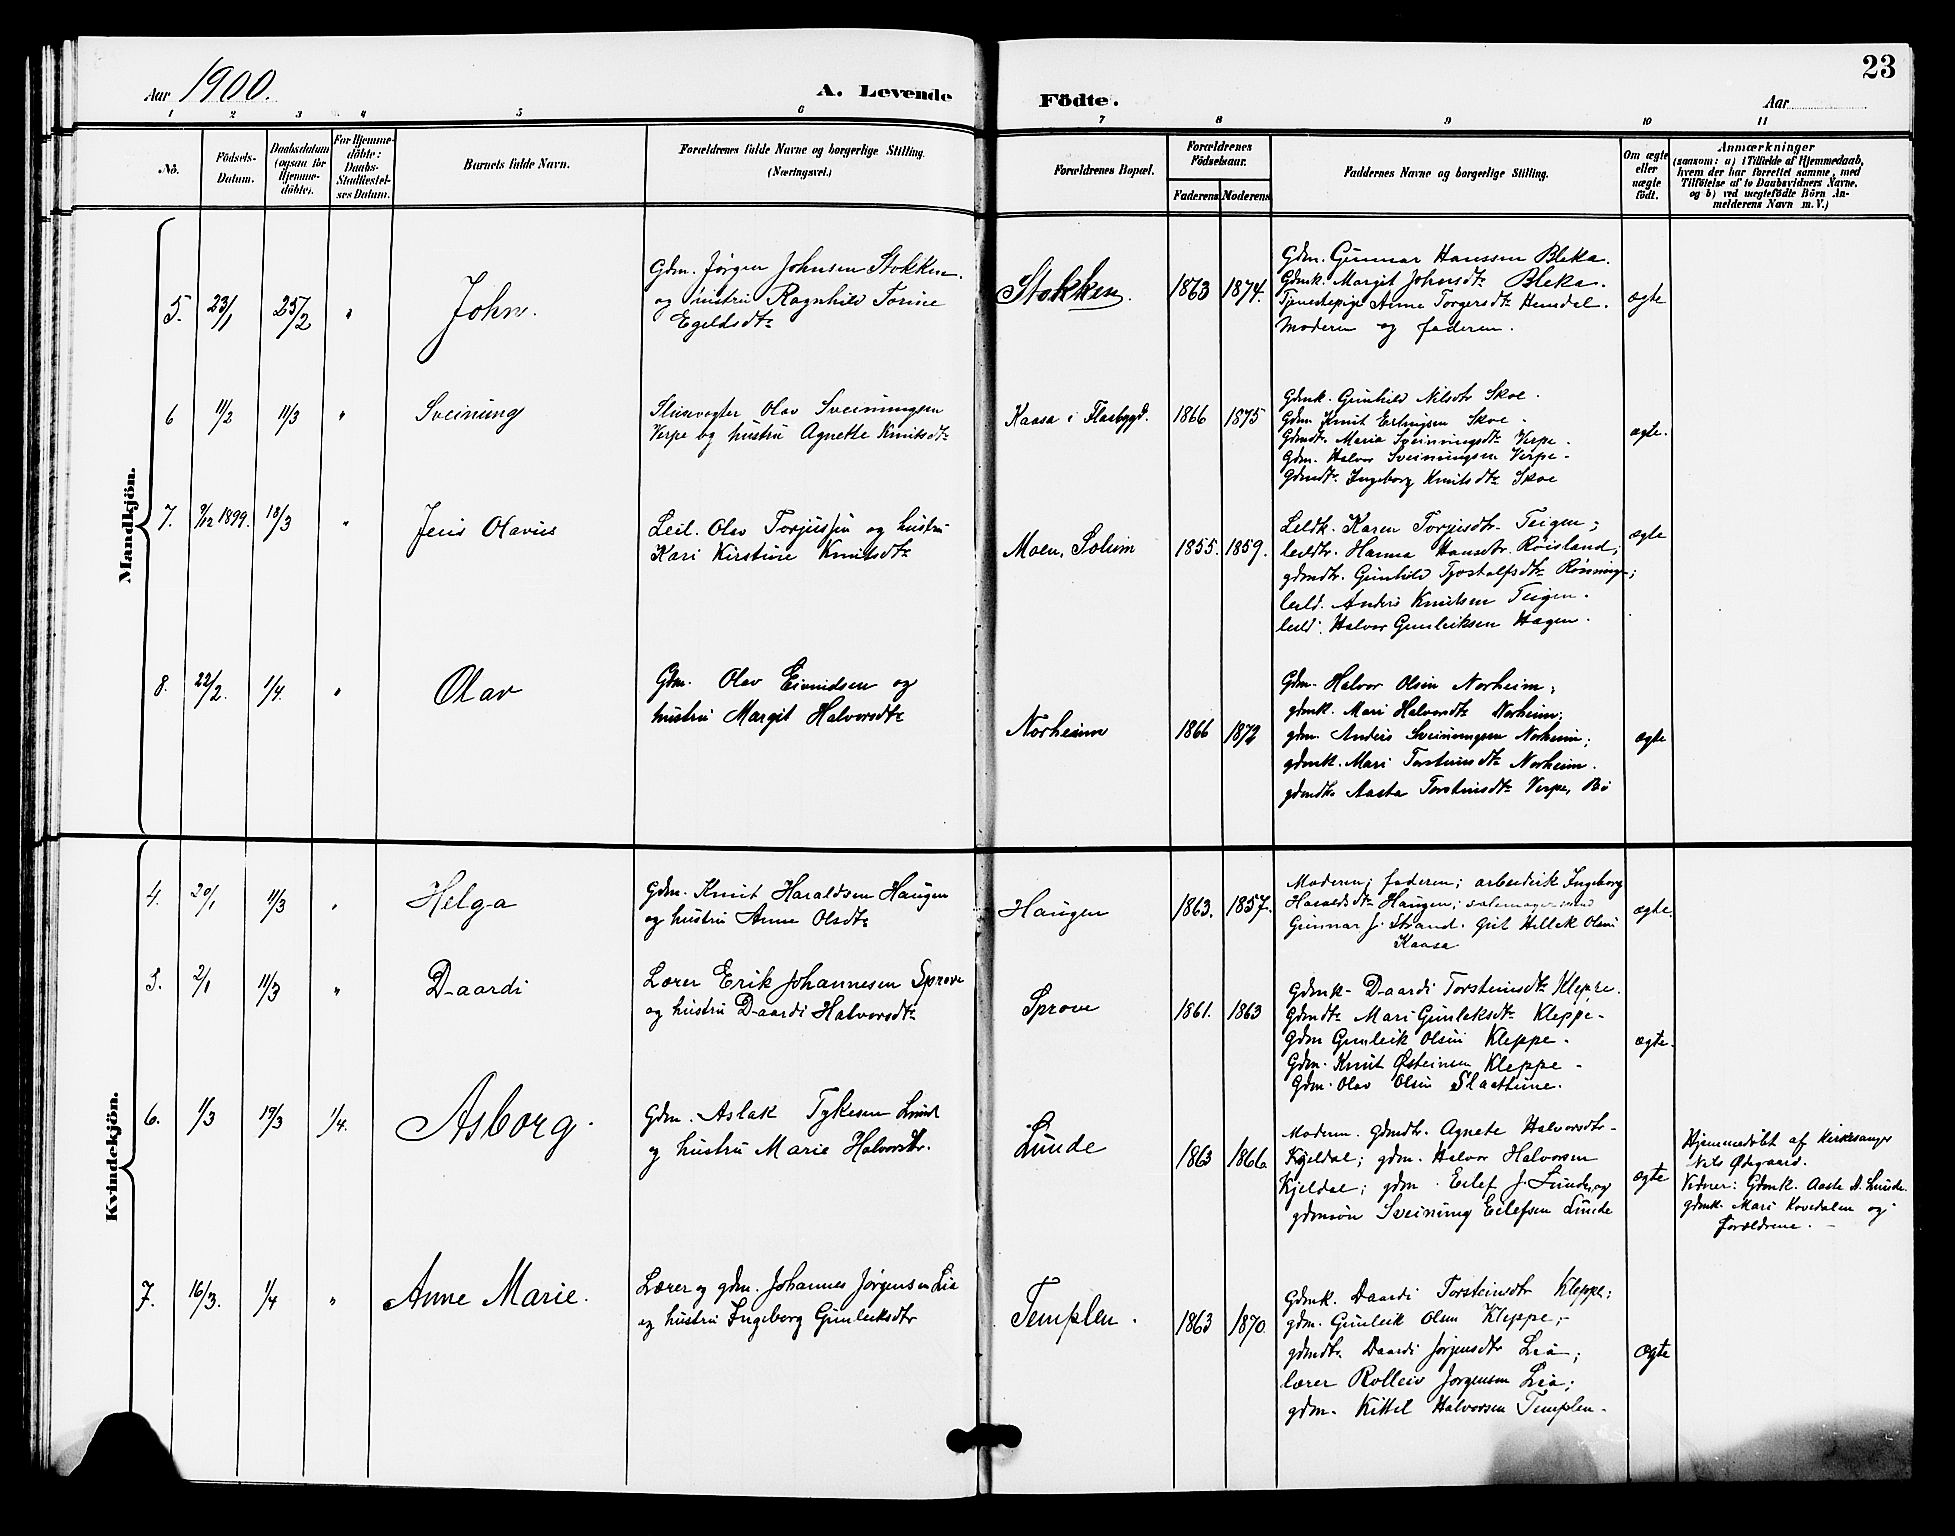 Aar 1900.
A. Levende
Födte.
23
Aar
1 2 3 4 5 6 7 8 9 10 11
No.
Födsels-
Datum.
Daabsdatum
(ogsaa for
Hjemme-
döbte).
For Hjemme-
döbte:
Daabs-
Stadfæstel-
ses Datum.
Barnets fulde Navn.
Forældrenes fulde Navne og borgerlige Stilling.
(Næringsvei.)
Forældrenes Bopæl.
Forældrenes
Födselsaar.
Faderens Moderens
Faddernes Navne og borgerlige Stilling.
Om ægte
eller
uægte
födt.
Anmærkninger
(saasom: a) i Tilfælde af Hjemmedaab,
hvem der har forrettet samme, med
Tilföielse af to Daabsvidners Navne,
og b) ved uegtefödte Börn An-
melderens Navn m. V.)
Mandkjön.
5. 23/1 25/2 " John.
Gdm. Jørgen Johnsen Stokken.
og hustru Ragnhild Torine
Egeldsdtr
Stokken. 1863 1874.
Gdm. Gunnar Hanssen Bleka.
Gdmk. Margit Johnsdtr Bleka.
Tjenestepige Anne Torgersdtr Hemdal.
Moderen og faderen.
ægte
6 11/2 11/3 " Sveinung
Slusevogter Olav Sveinungsen
Verpe og hustru Agnette Knutsdtr
Kaasa i Flatbygd. 1866 1875
Gdmk. Gunhild Nilsdtr Skoe.
Gdm. Knut Erlingsen Skoe.
Gdmdtr. Maria Sveinungsdtr Verpe.
Gdm. Halvor Sveinungsen Verpe.
Gdmdtr. Ingeborg Knutsdtr Skoe
ægte.
7. 9/12 1899. 18/3 " Jens Olavus
Leil. Olav Torjussen og hustru
Kari Kirstine Knutsdtr
Moen, Solum 1855. 1859.
Leldk. Karen Torjusdtr. Teigen;
leildtr. Hanna Hansdtr. Røisland;
gdmdtr. Gunhild Tjostolfsdtr Rønninge;
leild. Anders Knutsen Teigen.
leild. Halvor Gunleiksen Hagen.
ægte
8. 22/2. 1/4. " Olav
Gdm. Olav Eivindsen og
hustru Margit Halvorsdtr
Norheim 1866 1872
Gdm. Halvor Olsen Norheim;
gdmk. Mari Halvorsdtr Norheim;
gdm. Anders Sveinungsen Norheim;
gdmk. Mari Torsteinsdtr Norheim.
gdmdtr. Aasta Torsteinsdtr Verpe, Bø
ægte
Kvindekjön.
4. 20/1 11/3 " Helga
Gdm. Knut Haraldsen Haugen
og hustru Anne Olsdtr
Haugen 1863. 1857.
Moderen; faderen; arbeiderk Ingeborg
Haraldsdtr Haugen; salemagersvend
Gunnar J. Strand. Gut Hellek Olsen
Kaasa
ægte.
5. 2/1 11/3 " Daardi
Lærer Erik Johannesen Sprove
og hustru Daardi Halvorsdtr
Sprove 1861. 1863
Gdmk. Daardi Torsteinsdtr Kleppe.
Gdmdtr Mari Gunleiksdtr Kleppe.
Gdm Gunleik Olsen Kleppe.
Gdm. Knut Østeinsen Kleppe.
Gdm. Olav Olsen Slaattene.
ægte.
6. 1/3 19/3 1/4. Asborg.
Gdm. Aslak Tykesen Lund
og hustru Marie Halvorsdtr.
Lunde 1863 1866
Moderen. gdmdtr. Agnete Halvorsdtr.
Kjeldal; gdm. Halvor Halvorsen
Kjeldal; gdm. Eilef J. Lunde, og
gdmsøn Sveinung Eilefsen Lunde
ægte
Hjemmedøbt af Kirkesanger
Nils Ødegaard.
Vidner: Gdmk. Aaste A. Lunde.
gdmk. Mari Kovedalen og
forældrene.
7. 16/3. 1/4 " Anne Marie.
Lærer og gdm. Johannes Jørgensen Lia
og hustru Ingeborg Gunleiksdtr
Templen. 1863 1870.
Gdmk. Daardi Torsteinsdtr Kleppe;
gdm. Gunleik Olsen Kleppe;
gdmdtr. Daardi Jørgensdtr Lia;
lærer Rolleiv Jørgensen Lia;
gdm. Kittel Halvorsen Templen.
ægte